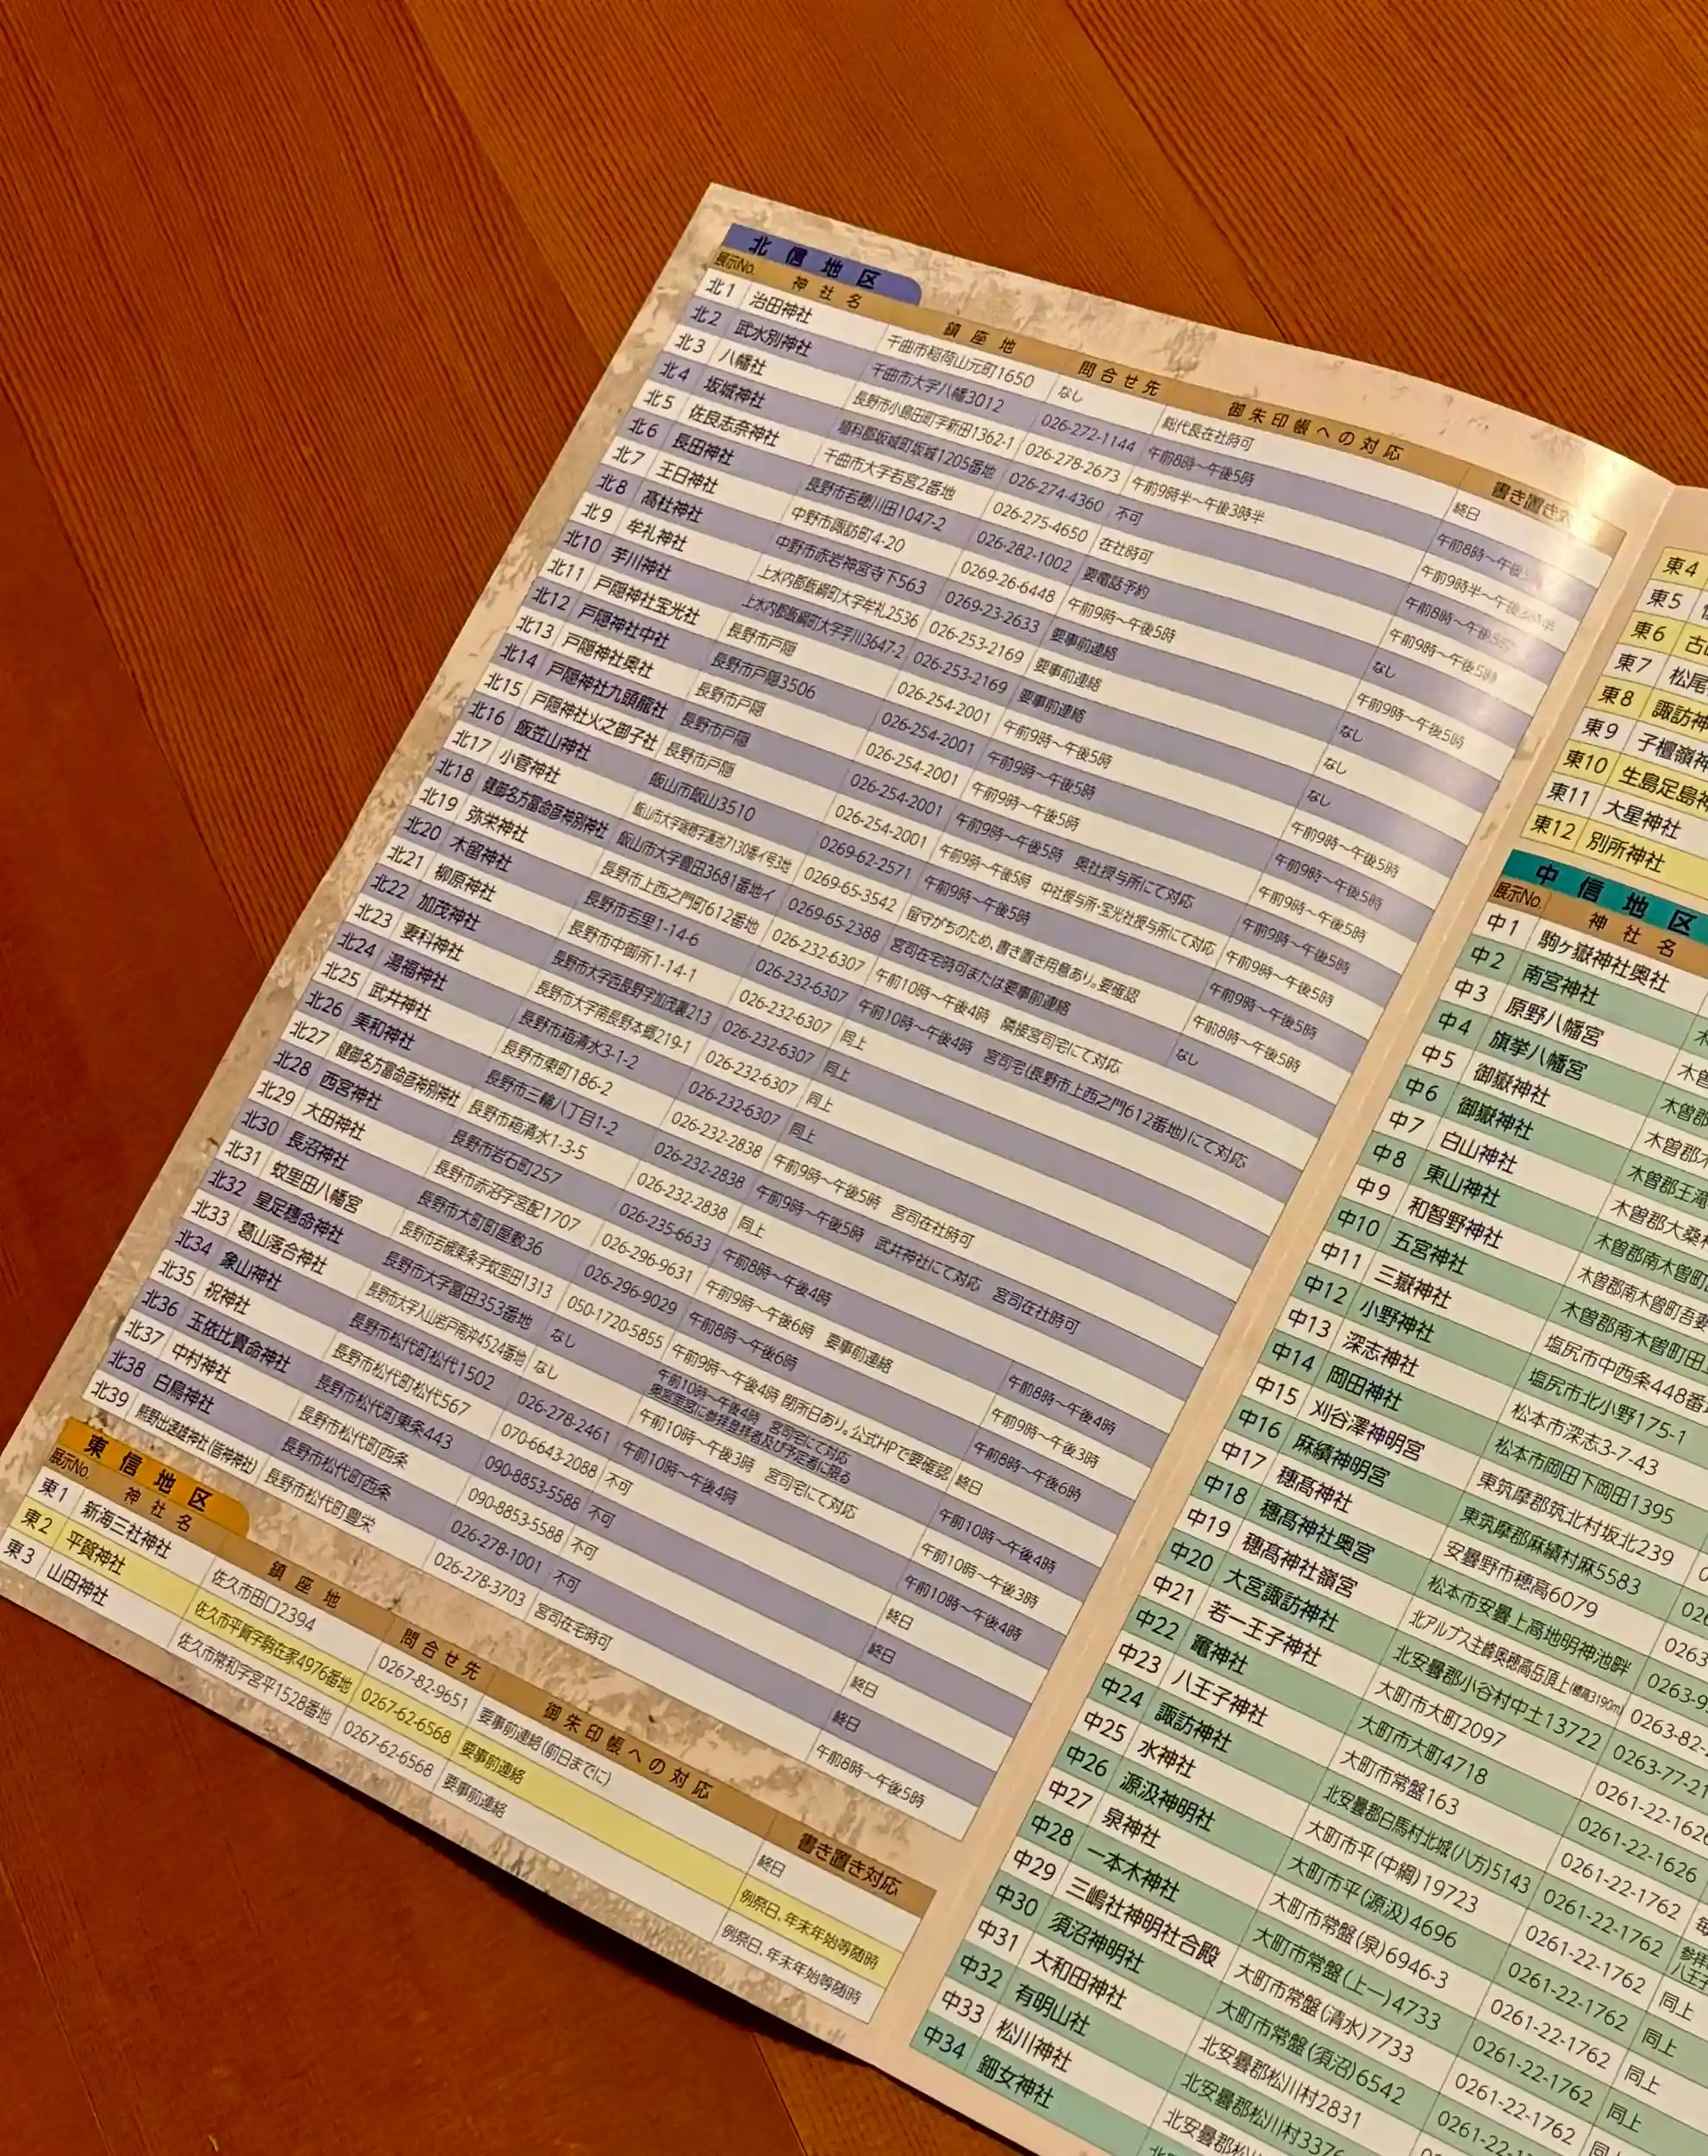 北信地区
展示No. 神社名 鎮座地 問合せ先 御朱印帳への対応 書き置き対
北1 治田神社 千曲市稲荷山元町1650 なし 総代長在社時可 終日
北2 武水別神社 千曲市大字八幡3012 026-272-1144 午前8時〜午後5時 午前8時〜午後5
北3 八幡社 長野市小島田町字新田1362-1 026-278-2673 午前9時半〜午後3時半 午前9時半〜午後3時半
北4 坂城神社 埴科郡坂城町坂城1205番地 026-274-4360 不可 午前8時〜午後5時
北5 佐良志奈神社 千曲市大字若宮2番地 026-275-4650 在社時可 午前9時〜午後5時
北6 長田神社 長野市若穂川田1047-2 026-282-1002 要電話予約 なし
北7 王日神社 中野市諏訪町4-20 0269-26-6448 午前9時〜午後5時 午前9時〜午後5時
北8 髙杜神社 中野市赤岩神宮寺下563 0269-23-2633 要事前連絡 なし
北9 牟礼神社 上水内郡飯綱町大字牟礼2536 026-253-2169 要事前連絡 なし
北10 芋川神社 上水内郡飯綱町大字芋川3647-2 026-253-2169 要事前連絡 なし
北11 戸隠神社宝光社 長野市戸隠 026-254-2001 午前9時〜午後5時 午前9時〜午後5時
北12 戸隠神社中社 長野市戸隠3506 026-254-2001 午前9時〜午後5時 午前9時〜午後5時
北13 戸隠神社奥社 長野市戸隠 026-254-2001 午前9時〜午後5時 午前9時〜午後5時
北14 戸隠神社九頭龍社 長野市戸隠 026-254-2001 午前9時〜午後5時 奥社授与所にて対応 午前9時〜午後5時
北15 戸隠神社火之御子社 長野市戸隠 026-254-2001 午前9時〜午後5時 中社授与所・宝光社授与所にて対応 午前9時〜午後5時
北16 飯笠山神社 飯山市飯山3510 0269-62-2571 午前9時〜午後5時 午前9時〜午後5時
北17 小菅神社 飯山市大字瑞穂字蓮池7130番イ号3地 0269-65-3542 留守がちのため、書き置き用意あり。要確認 午前8時〜午後5時
北18 健御名方富命彦神別神社 飯山市大字豊田3681番地イ 0269-65-2388 宮司在宅時可または要事前連絡 なし
北19 弥栄神社 長野市上西之門町612番地 026-232-6307 午前10時〜午後4時 隣接宮司宅にて対応
北20 木留神社 長野市若里1-14-6 026-232-6307 午前10時〜午後4時 宮司宅(長野市上西之門612番地)にて対応
北21 柳原神社 長野市中御所1-14-1 026-232-6307 同上
北22 加茂神社 長野市大字西長野字加茂裏213 026-232-6307 同上
北23 妻科神社 長野市大字南長野本郷219-1 026-232-6307 同上
北24 湯福神社 長野市箱清水3-1-2 026-232-6307 同上
北25 武井神社 長野市東町186-2 026-232-2838 午前9時〜午後5時 宮司在社時可
北26 美和神社 長野市三輪八丁目1-2 026-232-2838 午前9時〜午後5時 武井神社にて対応 宮司在社時可
北27 健御名方富命彦神別神社 長野市箱清水1-3-5 026-232-2838 同上
北28 西宮神社 長野市岩石町257 026-235-6633 午前8時〜午後4時 午前8時〜午後4時
北29 大田神社 長野市赤沼字宮配1707 026-296-9631 午前9時〜午後6時 要事前連絡 午前9時〜午後3時
北30 長沼神社 長野市大町町屋敷36 026-296-9029 午前8時〜午後6時 午前8時〜午後6時
北31 蚊里田八幡宮 長野市若槻東条字蚊里田1313 050-1720-5855 午前9時〜午後4時 閉所日あり。公式HPで要確認 終日
北32 皇足穗命神社 長野市大字冨田353番地 なし 午前10時〜午後4時 宮司宅にて対応 奥宮里宮に参拝登拝者及び予定者に限る 午前10時〜午後4時
北33 葛山落合神社 長野市大字入山岩戸南沖4524番地 なし 午前10時〜午後3時 宮司宅にて対応 午前10時〜午後3時
北34 象山神社 長野市松代町松代1502 026-278-2461 午前10時〜午後4時 午前10時〜午後4時
北35 祝神社 長野市松代町松代567 070-6643-2088 不可 終日
北36 玉依比賣命神社 長野市松代町東条443 090-8853-5588 不可 終日
北37 中村神社 長野市松代町西条 090-8853-5588 不可 終日
北38 白鳥神社 長野市松代町西条 026-278-1001 不可 終日
北39 熊野出速雄神社(皆神神社) 長野市松代町豊栄 026-278-3703 宮司在宅時可 午前8時〜午後5時
東信地区
展示No. 神社名 鎮座地 問合せ先 御朱印帳への対応 書き置き対応
東1 新海三社神社 佐久市田口2394 0267-82-9651 要事前連絡(前日までに) 終日
東2 平賀神社 佐久市平賀字駒在家4976番地 0267-62-6568 要事前連絡 例祭日、年末年始等随時
東3 山田神社 佐久市常和字宮平1528番地 0267-62-6568 要事前連絡 例祭日、年末年始等随時
東4
東5
東6 古
東7 松尾
東8 諏訪神
東9 子檀嶺神
東10 生島足島神
東11 大星神社
東12 別所神社
中信地区
展示No. 神社名
中1 駒ケ嶽神社奥社
中2 南宮神社 木
中3 原野八幡宮 木曽
中4 旗挙八幡宮 木曽郡
中5 御嶽神社 木曽郡
中6 御嶽神社 木曽郡王滝
中7 白山神社 木曽郡大桑村
中8 東山神社 木曽郡南木曽町
中9 和智野神社 木曽郡南木曽町吾妻
中10 五宮神社 木曽郡南木曽町田
中11 三嶽神社 塩尻市中西条448番
中12 小野神社 塩尻市北小野175-1
中13 深志神社 松本市深志3-7-43
中14 岡田神社 松本市岡田下岡田1395
中15 刈谷澤神明宮 東筑摩郡筑北村坂北239 0
中16 麻績神明宮 東筑摩郡麻績村麻5583 026
中17 穗髙神社 安曇野市穂高6079 0263
中18 穗髙神社奥宮 松本市安曇上高地明神池畔 0263-9
中19 穗髙神社嶺宮 北アルプス主峰奥穂高岳頂上(標高3190m) 0263-82-
中20 大宮諏訪神社 北安曇郡小谷村中土13722 0263-77-21
中21 若一王子神社 大町市大町2097 0261-22-1626
中22 竈神社 大町市大町4718 0261-22-1626
中23 八王子神社 大町市常盤163 0261-22-1762
中24 諏訪神社 北安曇郡白馬村北城(八方)5143 0261-22-1762
中25 水神社 大町市平(中綱)19723 0261-22-1762 同上
中26 源汲神明社 大町市平(源汲)4696 0261-22-1762 同上
中27 泉神社 大町市常盤(泉)6946-3 0261-22-1762 同上
中28 一本木神社 大町市常盤(上一)4733 0261-22-1762 同上
中29 三嶋社神明社合殿 大町市常盤(清水)7733 0261-22-1762 同
中30 須沼神明社 大町市常盤(須沼)6542
中31 大和田神社 北安曇郡松川村2831
中32 有明山社 北安曇郡松川村3376
中33 松川神社 北安曇郡松
中34 鈿女神社